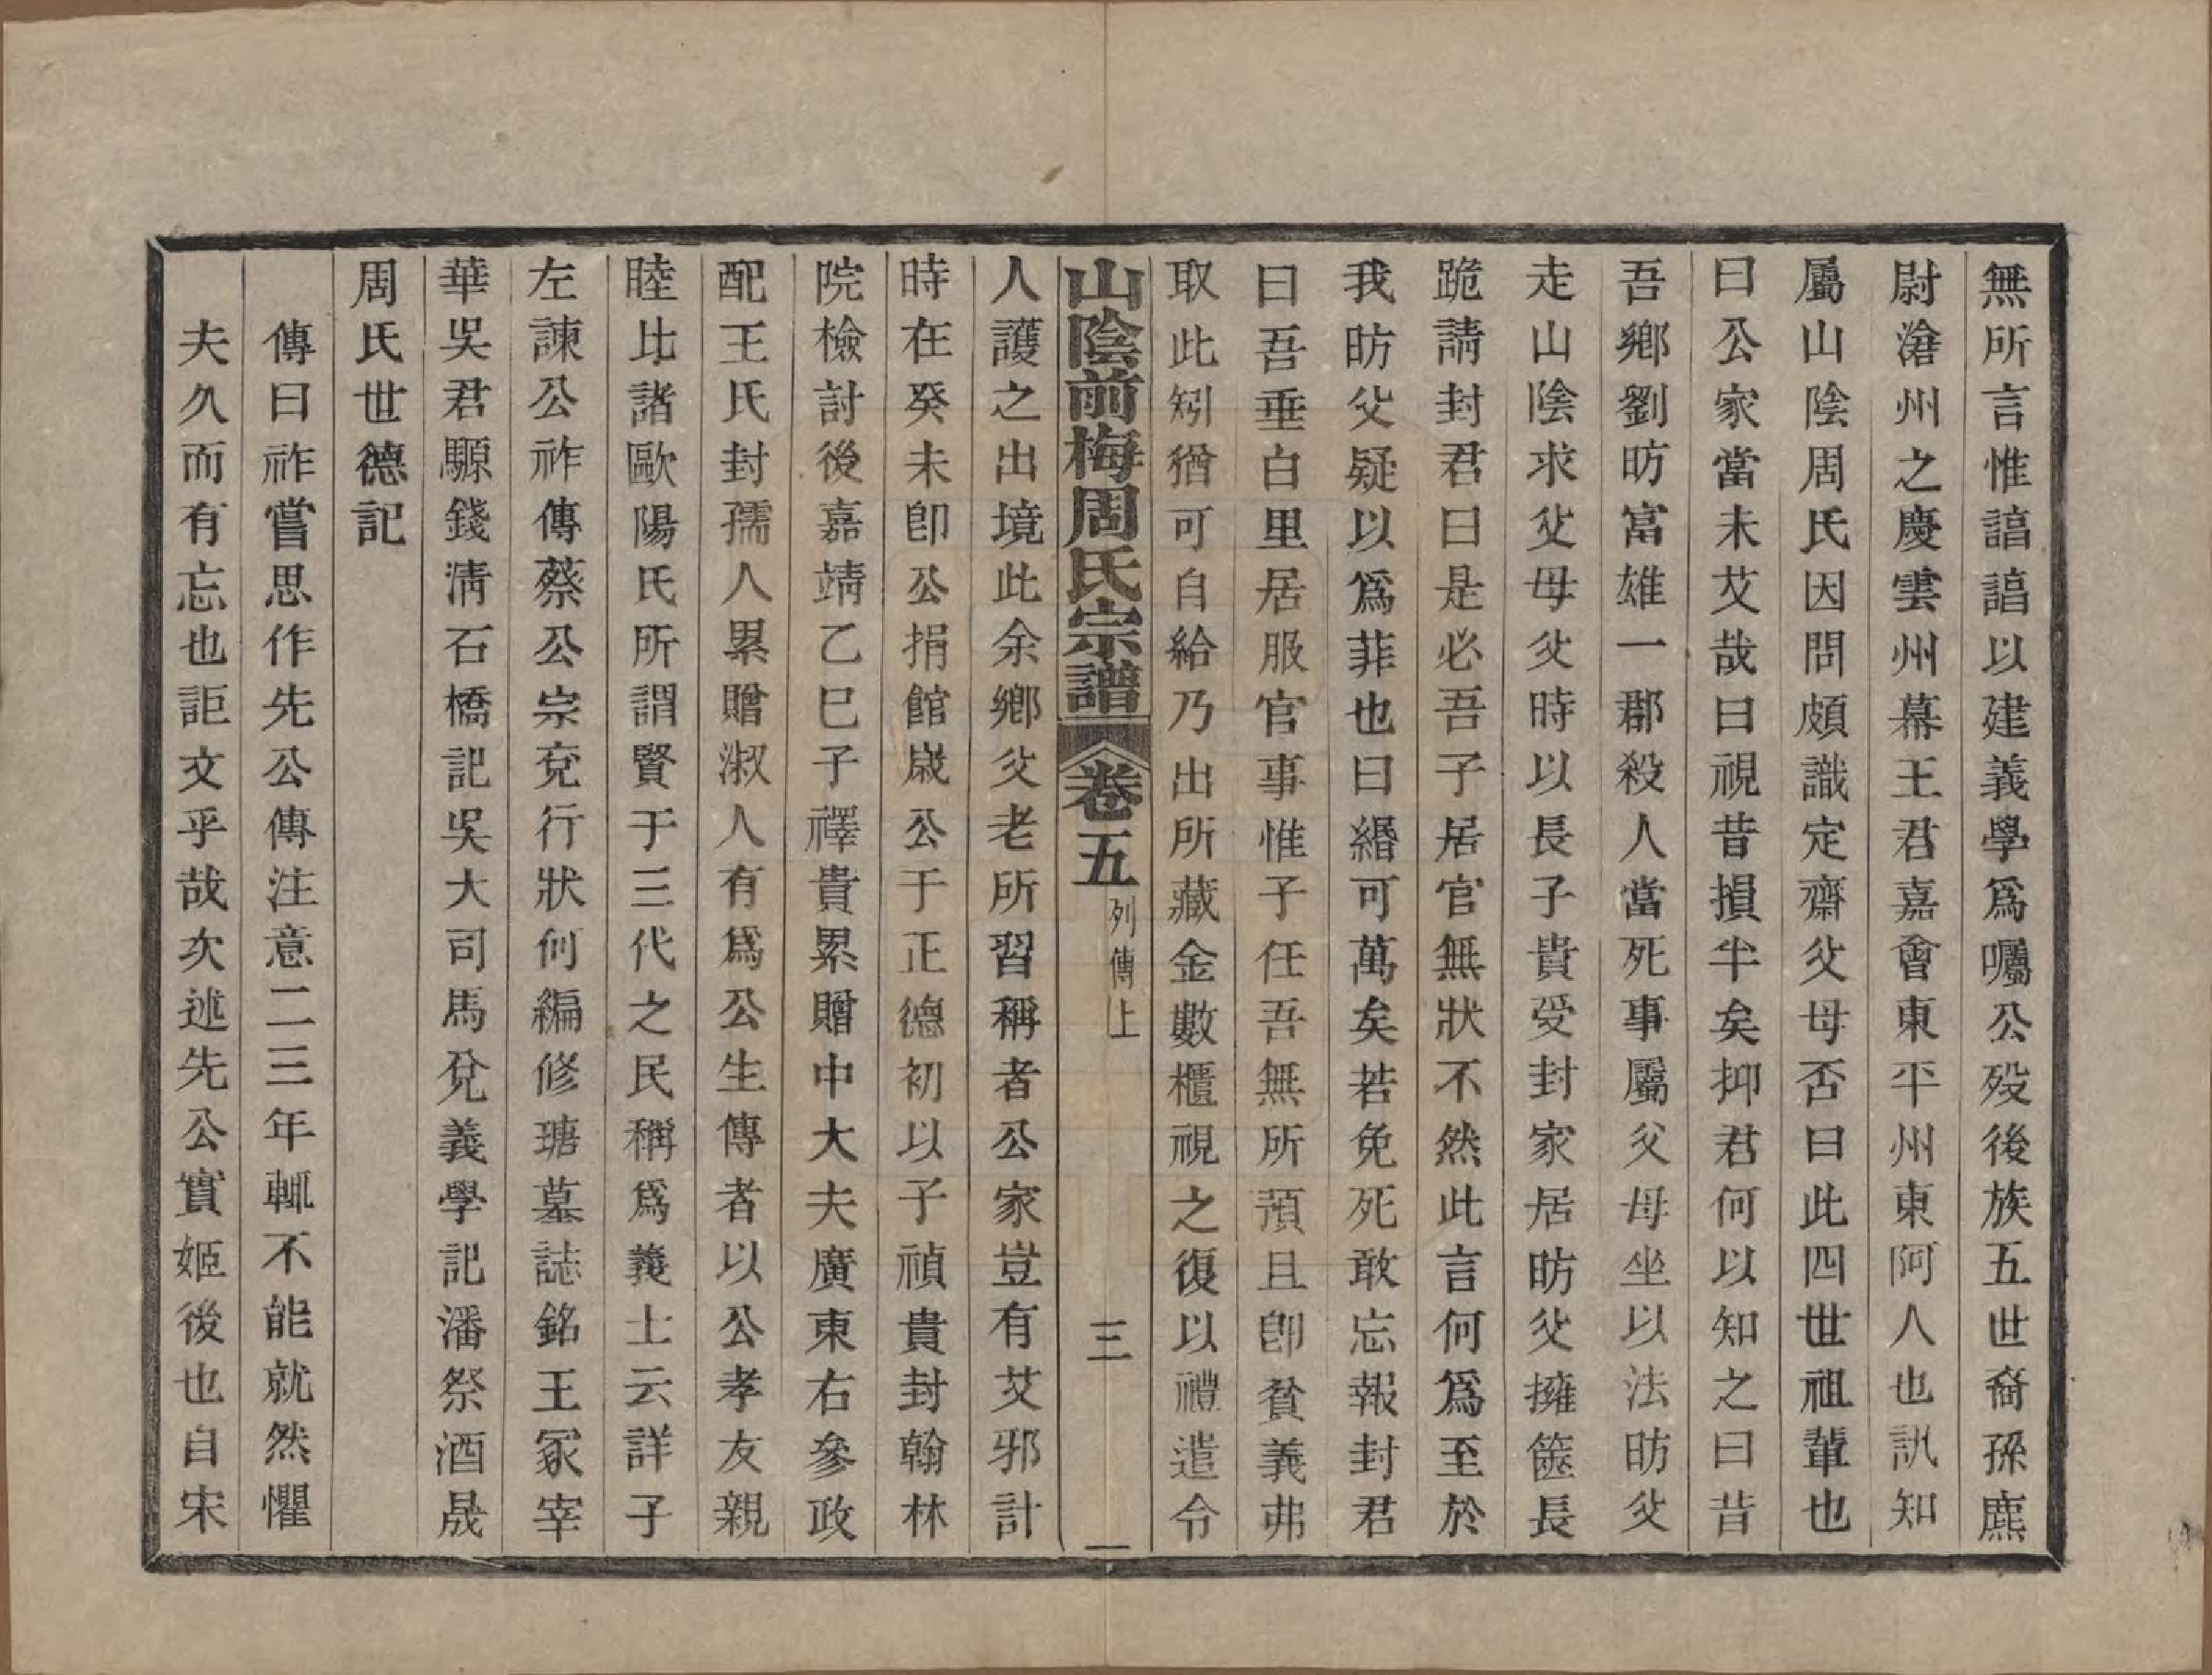 無所言惟諳諳以建義學爲囑公歿後族五世裔孫廌
尉滄州之慶雲州幕王君嘉會東平州東阿人也訊知
屬山陰周氏因問頗識定齋父母否曰此四世祖輩也
曰公家當未艾哉曰視昔損半矣抑君何以知之曰昔
吾鄉劉昉富雄一郡殺人當死事屬父母坐以法昉父
走山陰求父母父時以長子貴受封家居昉父擁篋長
跪請封君曰是必吾子居官無狀不然此言何爲至於
我昉父疑以爲菲也曰緡可萬矣若免死敢忘報封君
曰吾垂白里居服官事惟子任吾無所預且卽貧義弗
取此矧猶可自給乃出所藏金數櫃視之復以禮遣令
山陰前梅周氏宗譜 卷五 列傳上 三
人護之出境此余鄉父老所習稱者公家豈有艾邪計
時在癸未卽公捐館歲公于正德初以子禎貴封翰林
院檢討後嘉靖乙巳子禪貴累贈中大夫廣東右參政
配王氏封孺人累贈淑人有爲公生傳者以公孝友親
睦比諸歐陽氏所謂賢于三代之民稱爲義士云詳子
左諫公祚傳蔡公宗兗行狀何編修瑭墓誌銘王冢宰
華吳君騵錢淸石橋記吳大司馬兌義學記潘祭酒晟
周氏世德記
傳曰祚嘗思作先公傳注意二三年輒不能就然懼
夫久而有忘也詎文乎哉次述先公實姬後也自宋